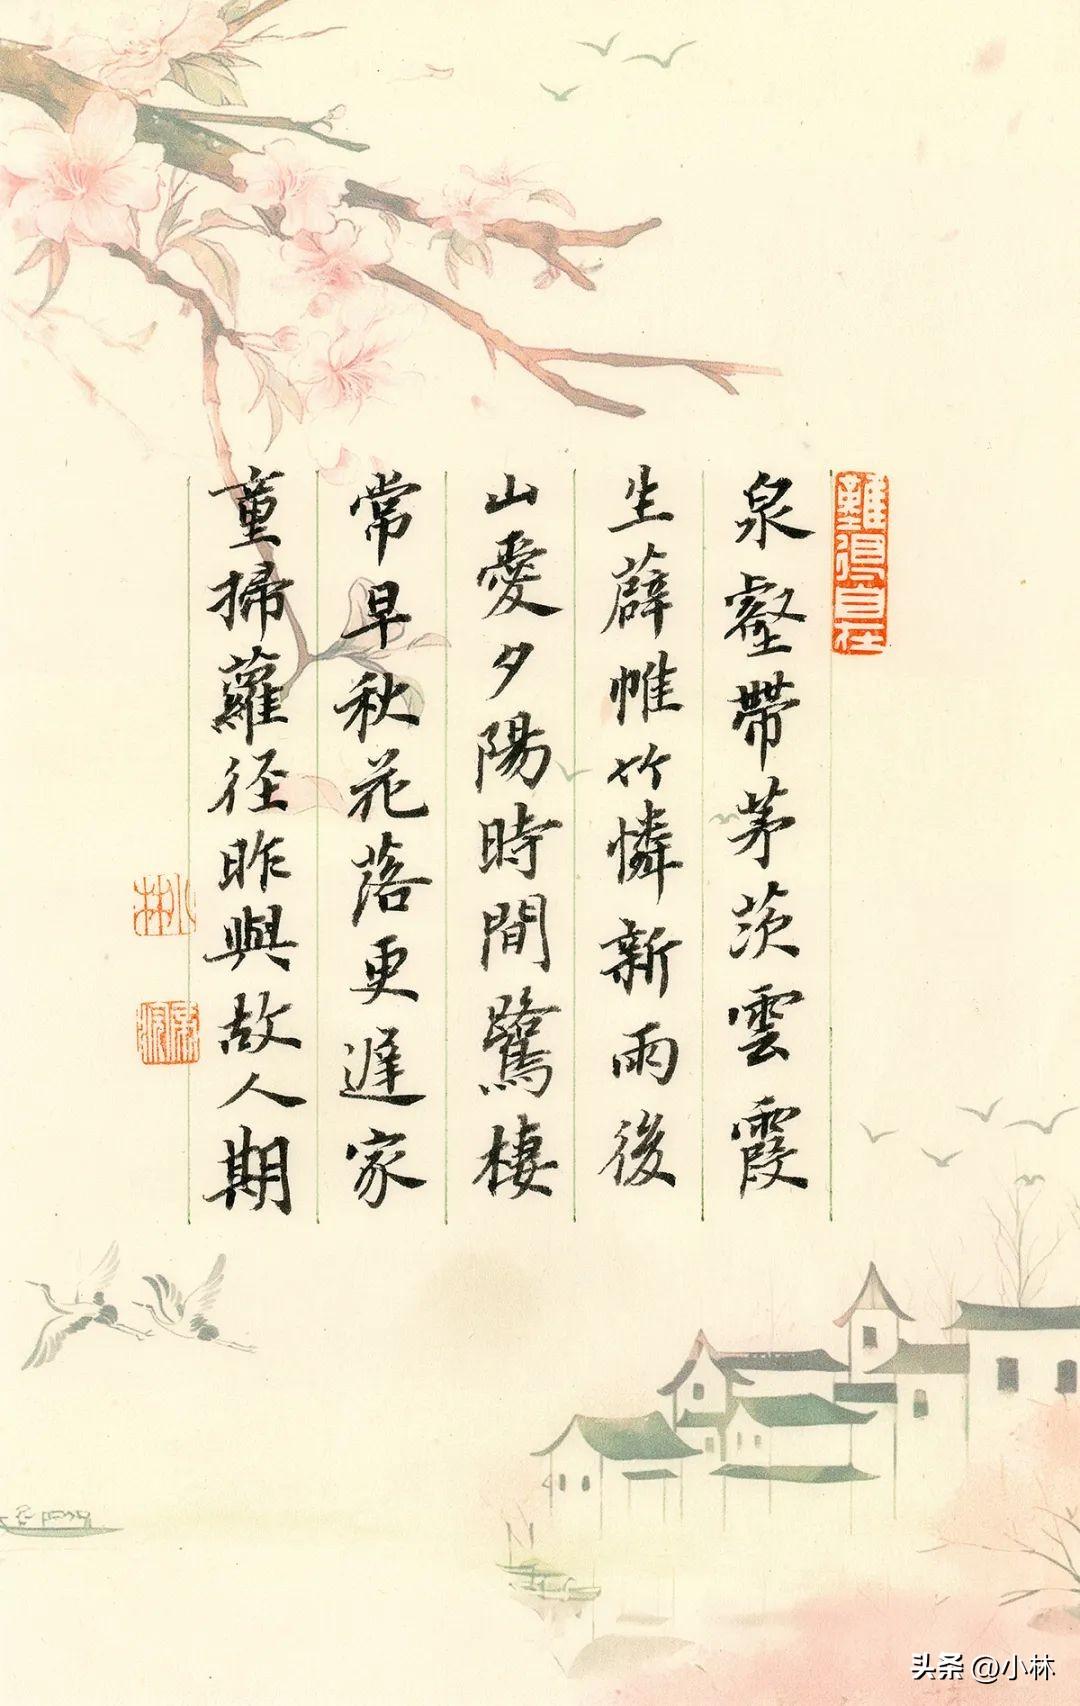 難得自在
泉壑帶茅茨雲霞
生薜帷竹憐新雨後
山愛夕陽時間鷺棲
常早秋花落更遲家
童掃蘿径昨與故人期
小林
头条 @小林